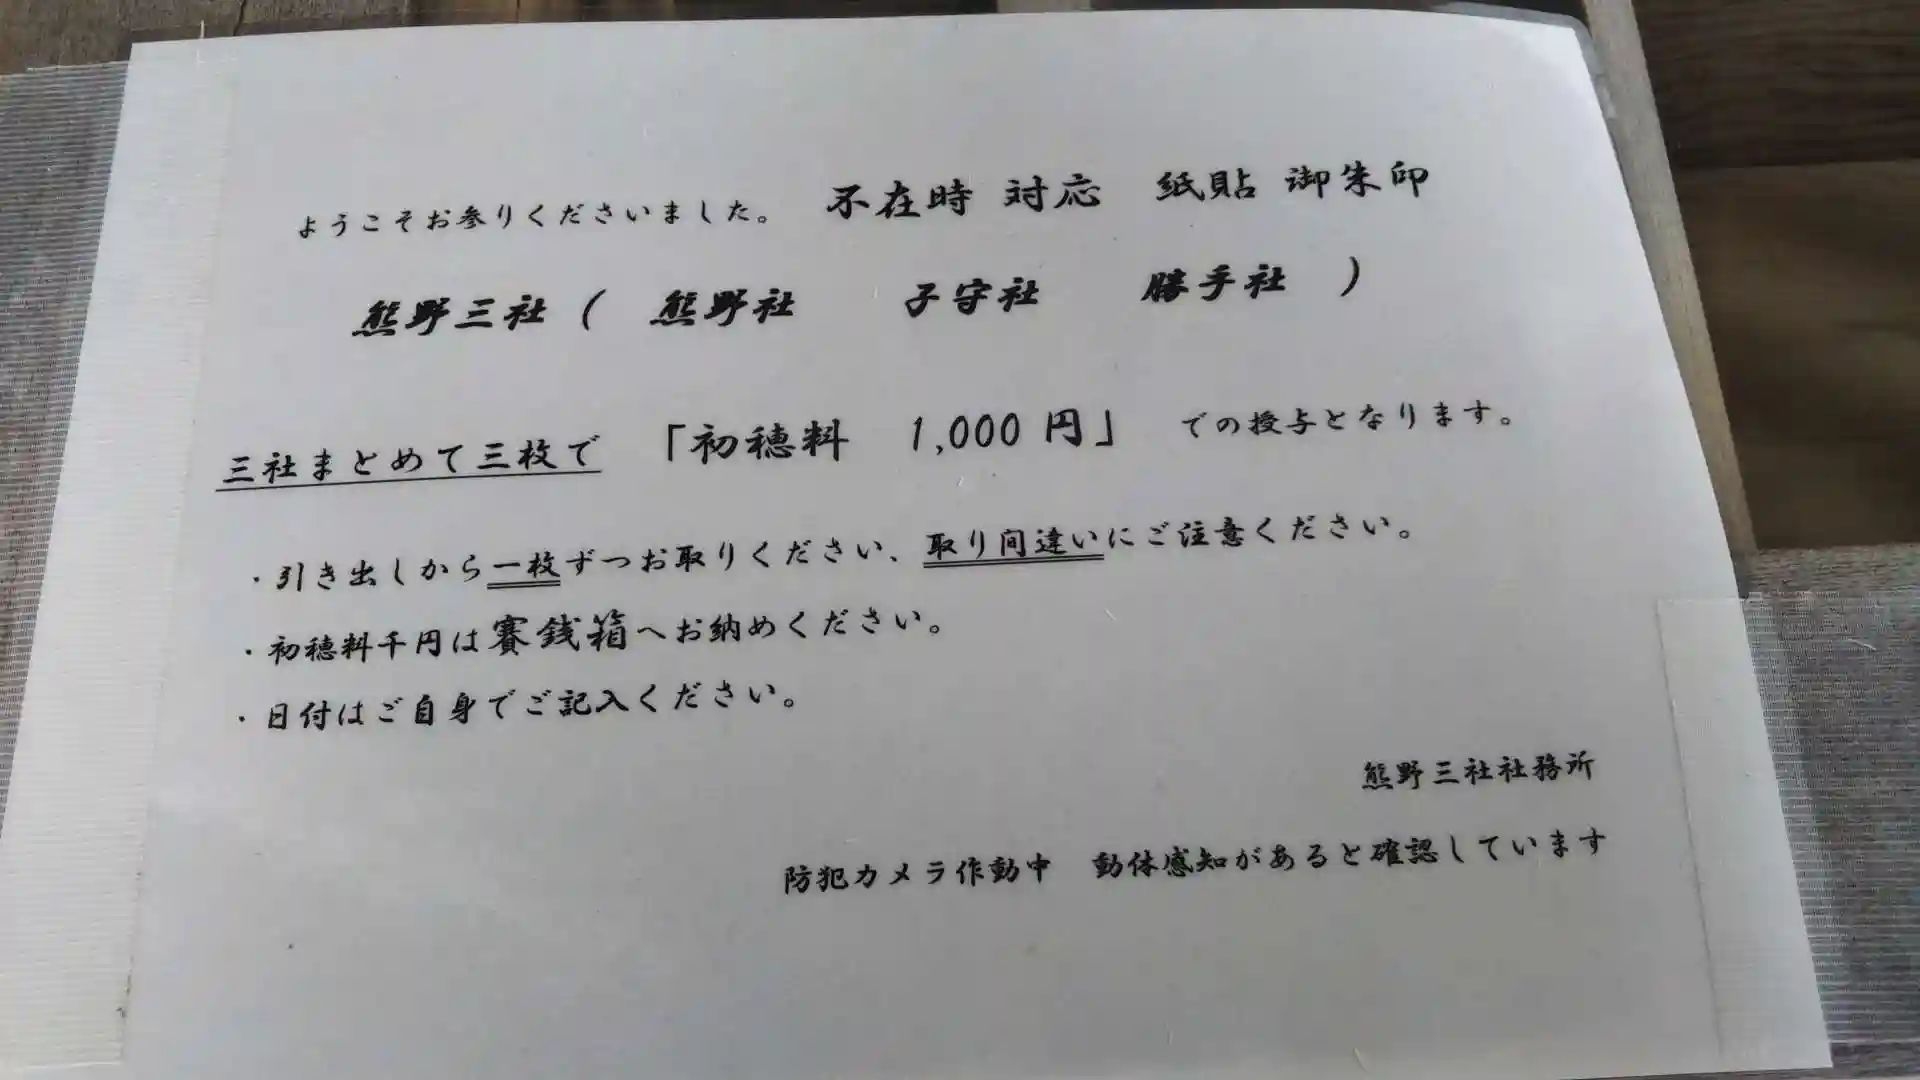 ようこそお参りくださいました。 不在時 対応 紙貼 御朱印
熊野三社( 熊野社 子守社 勝手社 )
三社まとめて三枚で 「初穂料 1,000 円」 での授与となります。
・引き出しから一枚ずつお取りください、取り間違いにご注意ください。
・初穂料千円は賽銭箱へお納めください。
・日付はご自身でご記入ください。
熊野三社社務所
防犯カメラ作動中 動体感知があると確認しています